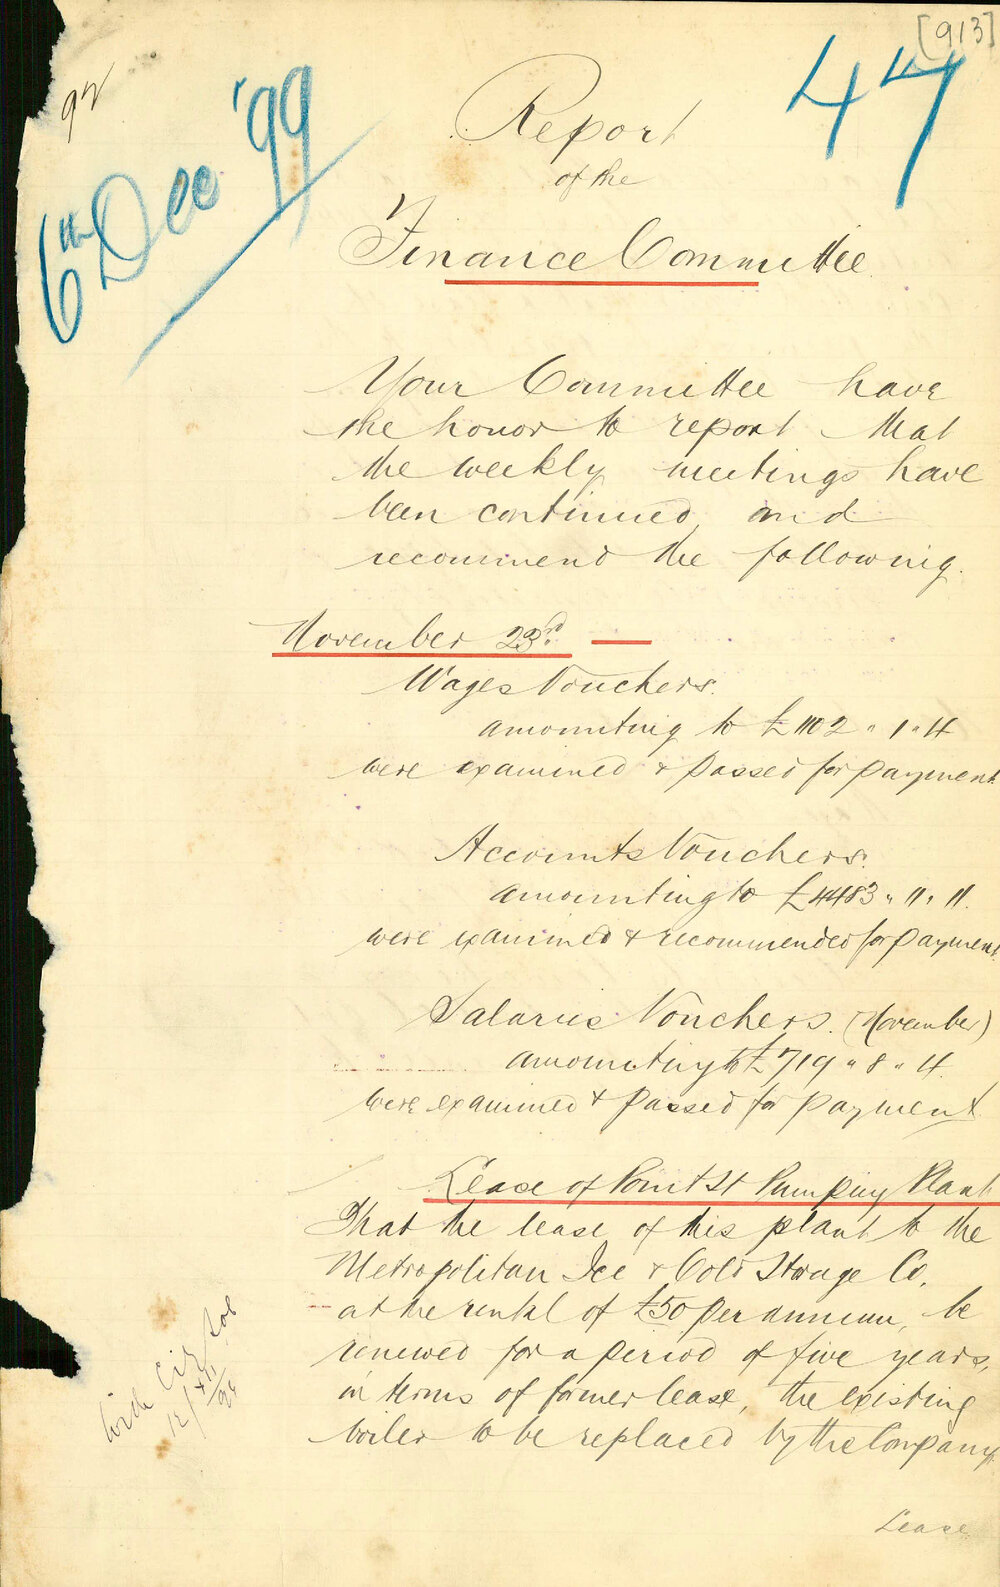 [913]
47
92
6th Dec '99
Report
of the
Finance Committee
Your Committee have
the honor to report that
the weekly meetings have
been continued, and
recommend the following.
November 23rd. —
Wages Vouchers.
amounting to £1102 " 1 " 4
were examined & passed for payment
Accounts Vouchers.
amounting to £4483 " 11 " 11.
were examined & recommended for payment.
Salaries Vouchers. (November)
amounting to £719 " 8 " 4.
were examined & passed for payment.
Lease of Point St Pumping Plant
That the lease of this plant to the
Metropolitan Ice & Cold Storage Co.
at the rental of £50 per annum, be
renewed for a period of five years,
in terms of former lease, the existing
boiler to be replaced by the Company.
Lease